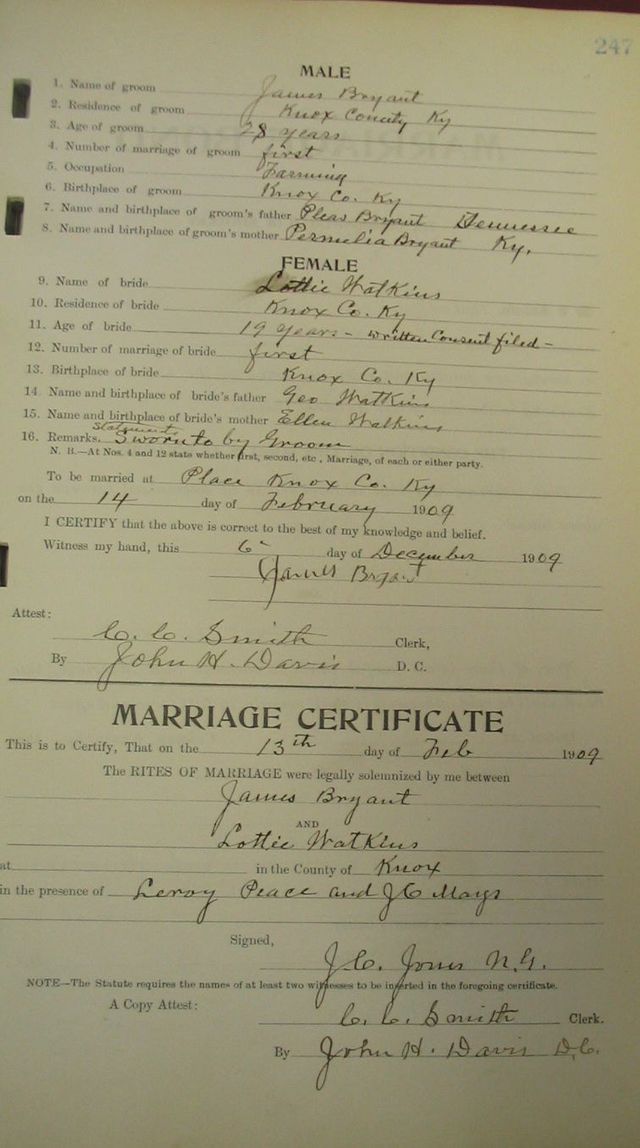 247
MALE
1. Name of groom James Bryant
2. Residence of groom Knox County Ky
3. Age of groom 28 years
4. Number of marriage of groom first
5. Occupation Farming
6. Birthplace of groom Knox Co. Ky
7. Name and birthplace of groom's father Pleas Bryant Tennessee
8. Name and birthplace of groom's mother Permelia Bryant Ky.
FEMALE
9. Name of bride Lottie Watkins
10. Residence of bride Knox Co. Ky
11. Age of bride 19 years - written Consent filed -
12. Number of marriage of bride first
13. Birthplace of bride Knox Co. Ky
14. Name and birthplace of bride's father Geo Watkins
15. Name and birthplace of bride's mother Ellen Watkins
16. Remarks. Statements Sworn to by Groom
N. B.—At Nos. 4 and 12 state whether first, second, etc, Marriage, of each or either party.
To be married at Place Knox Co. Ky
on the 14 day of February 1909
I CERTIFY that the above is correct to the best of my knowledge and belief.
Witness my hand, this 6 day of December 1909
James Bryant
Attest:
C. C. Smith Clerk,
By John H. Davis D. C.
MARRIAGE CERTIFICATE
This is to Certify, That on the 13th day of Feb 1909
The RITES OF MARRIAGE were legally solemnized by me between
James Bryant
AND
Lottie Watkins
at in the County of Knox
in the presence of Leroy Peace and J C Mays
Signed,
J. C. Jones
NOTE—The Statute requires the names of at least two witnesses to be inserted in the foregoing certificate.
A Copy Attest:
C. C. Smith Clerk.
By John H. Davis D.C.